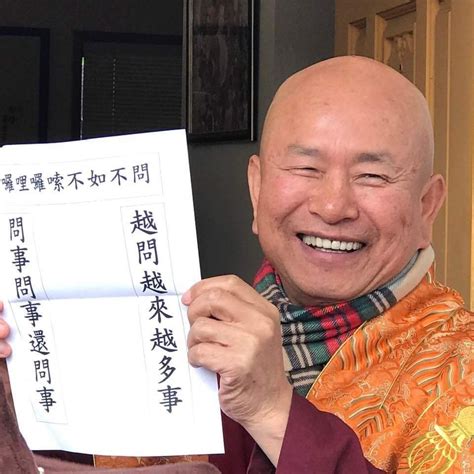 囉哩囉嗦不如不問
越問越來越多事
問事問事還問事